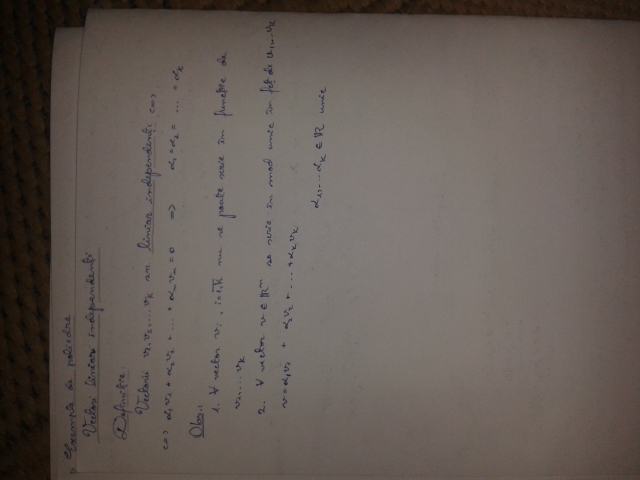 Exemple de poliedre
Vectori liniar independenți
Definiție:
Vectorii v₁, v₂, ... vₖ sn liniar independenți (=)
(=) α₁v₁ + α₂v₂ + ... + αₖvₖ = 0 => α₁ = α₂ = ... = αₖ
Obs:
1. ∀ vector vᵢ, i=1,k nu se poate scrie în funcție de
v₁, ... vₖ
2. ∀ vector v ∈ ℝⁿ se scrie în mod unic în fct de v₁, ... vₖ
v = α₁v₁ + α₂v₂ + ... + αₖvₖ
α₁, ... αₖ ∈ ℝ unic